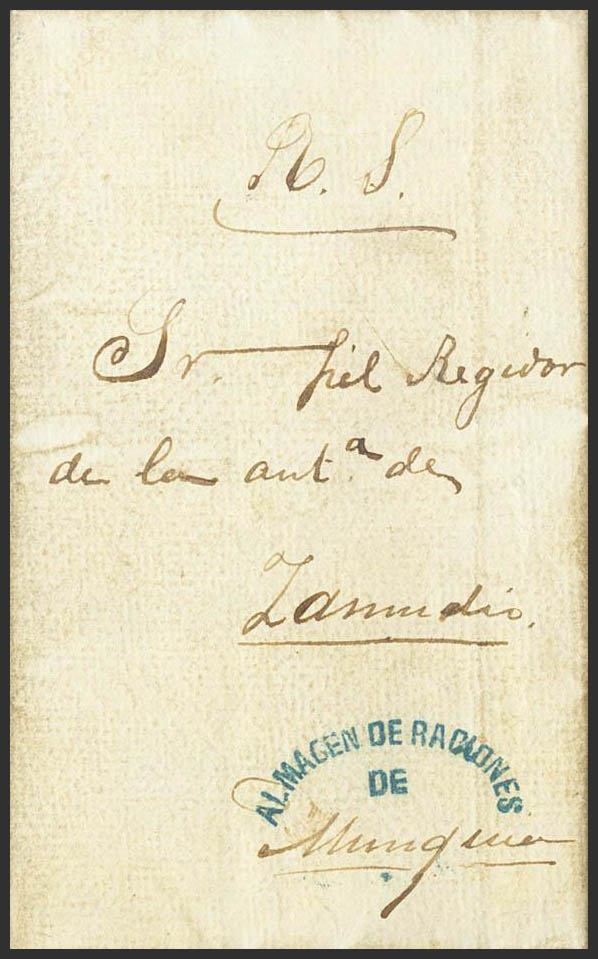 R. S.
Sr. fiel Regidor
de la ant.ª de
Zamudio.
ALMACEN DE RACIONES
DE
Munguia